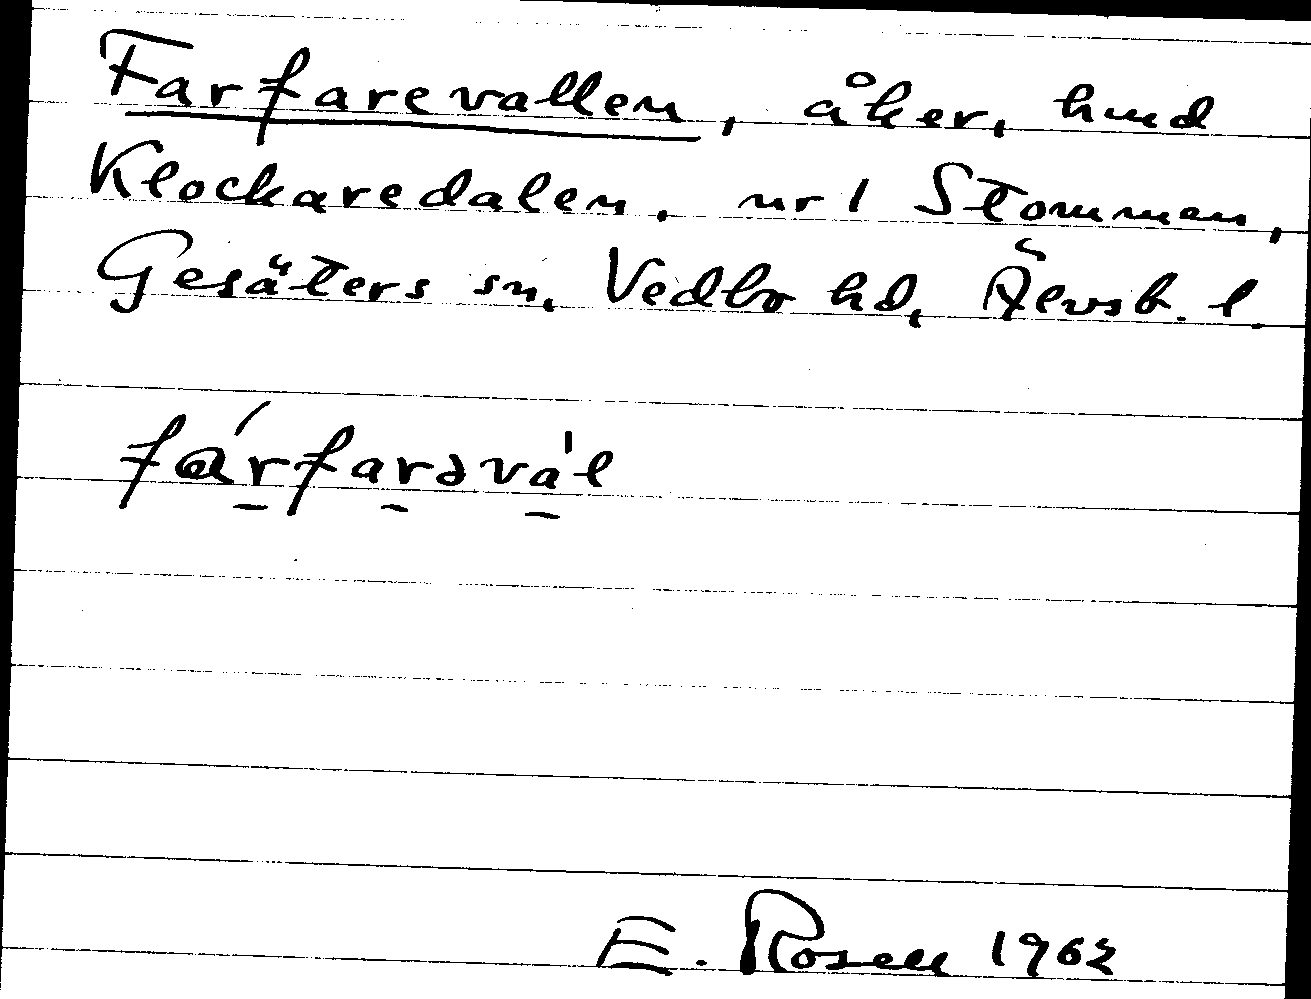 Farfarevallen, åker, hmd
Klockaredalen, nr 1 Stommen,
Gesäters sn, Vedbo hd, Älvsb. l.
fárfarəva'l
E. Rosell 1962